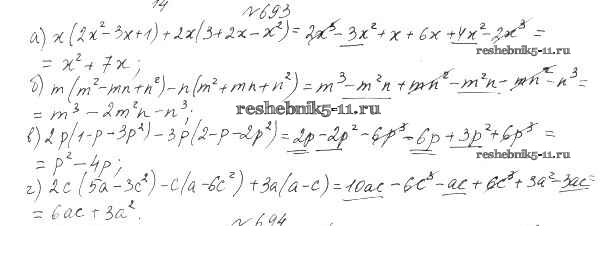 14
№693
а) x(2x²-3x+1)+2x(3+2x-x²)=2x³-3x²+x+6x+4x²-2x³=
reshebnik5-11.ru
=x²+7x;
б) m(m²-mn+n²)-n(m²+mn+n²)=m³-m²n+mn²-m²n-mn²-n³=
=m³-2m²n-n³;
reshebnik5-11.ru
в) 2p(1-p-3p²)-3p(2-p-2p²)=2p-2p²-6p³-6p+3p²+6p³=
=p²-4p;
reshebnik5-11.ru
г) 2c(5a-3c²)-c(a-6c²)+3a(a-c)=10ac-6c³-ac+6c³+3a²-3ac=
=6ac+3a².
№694